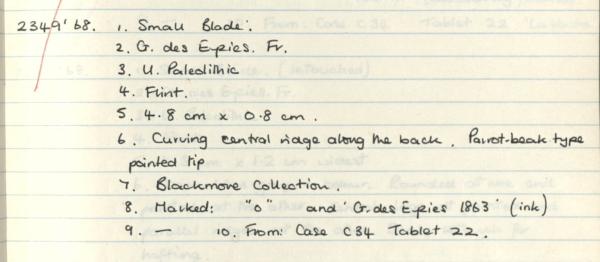 2349'68. 1. Small Blade.
2. G. des Eyzies. Fr.
3. U. Paleolithic
4. Flint.
5. 4.8 cm x 0.8 cm.
6. Curving central ridge along the back. Parrot-beak type
pointed tip
7. Blackmore Collection.
8. Marked: "o" and 'G. des Eyzies 1863' (ink)
9. — 10. From: Case C34 Tablet 22.